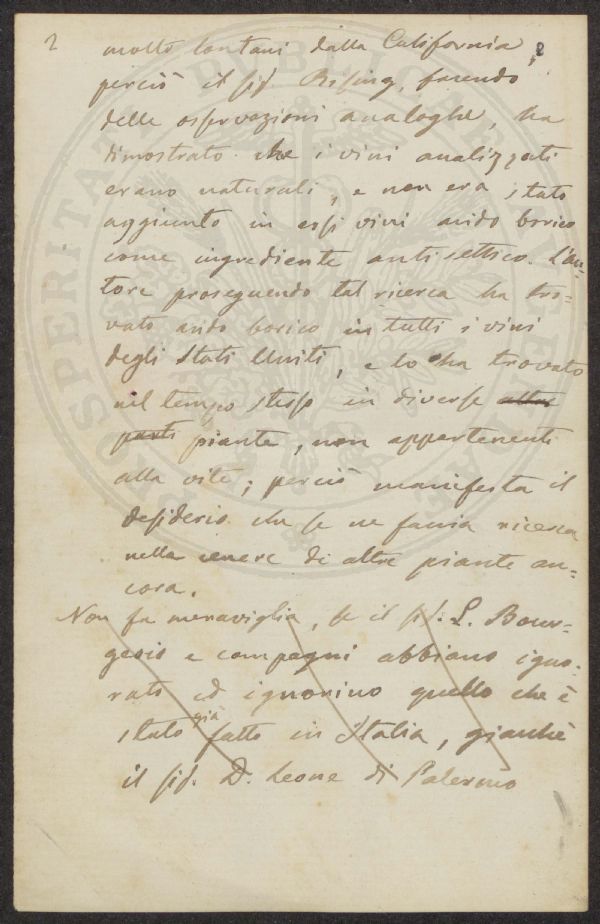 2 molto lontani dalla California,
perciò il sig. Rising, facendo
delle osservazioni analoghe, ha
dimostrato che i vini analizzati
erano naturali, e non era stato
aggiunto in essi vini acido borico
come ingrediente antisettico. L'au-
tore proseguendo tal ricerca ha tro=
vato acido borico in tutti i vini
degli Stati Uniti, e lo ha trovato
nel tempo stesso in diverse altre
parti piante, non appartenenti
alla vite; perciò manifesta il
desiderio che se ne faccia ricerca
nella cenere di altre piante an=
cora.
Non fa meraviglia, se il sig. L. Bour=
geois e compagni abbiano igno-
rato ed ignorino quello che è
stato già fatto in Italia, giacchè
il sig. D. Leone di Palermo
PROSPERITATI PUBLICAE